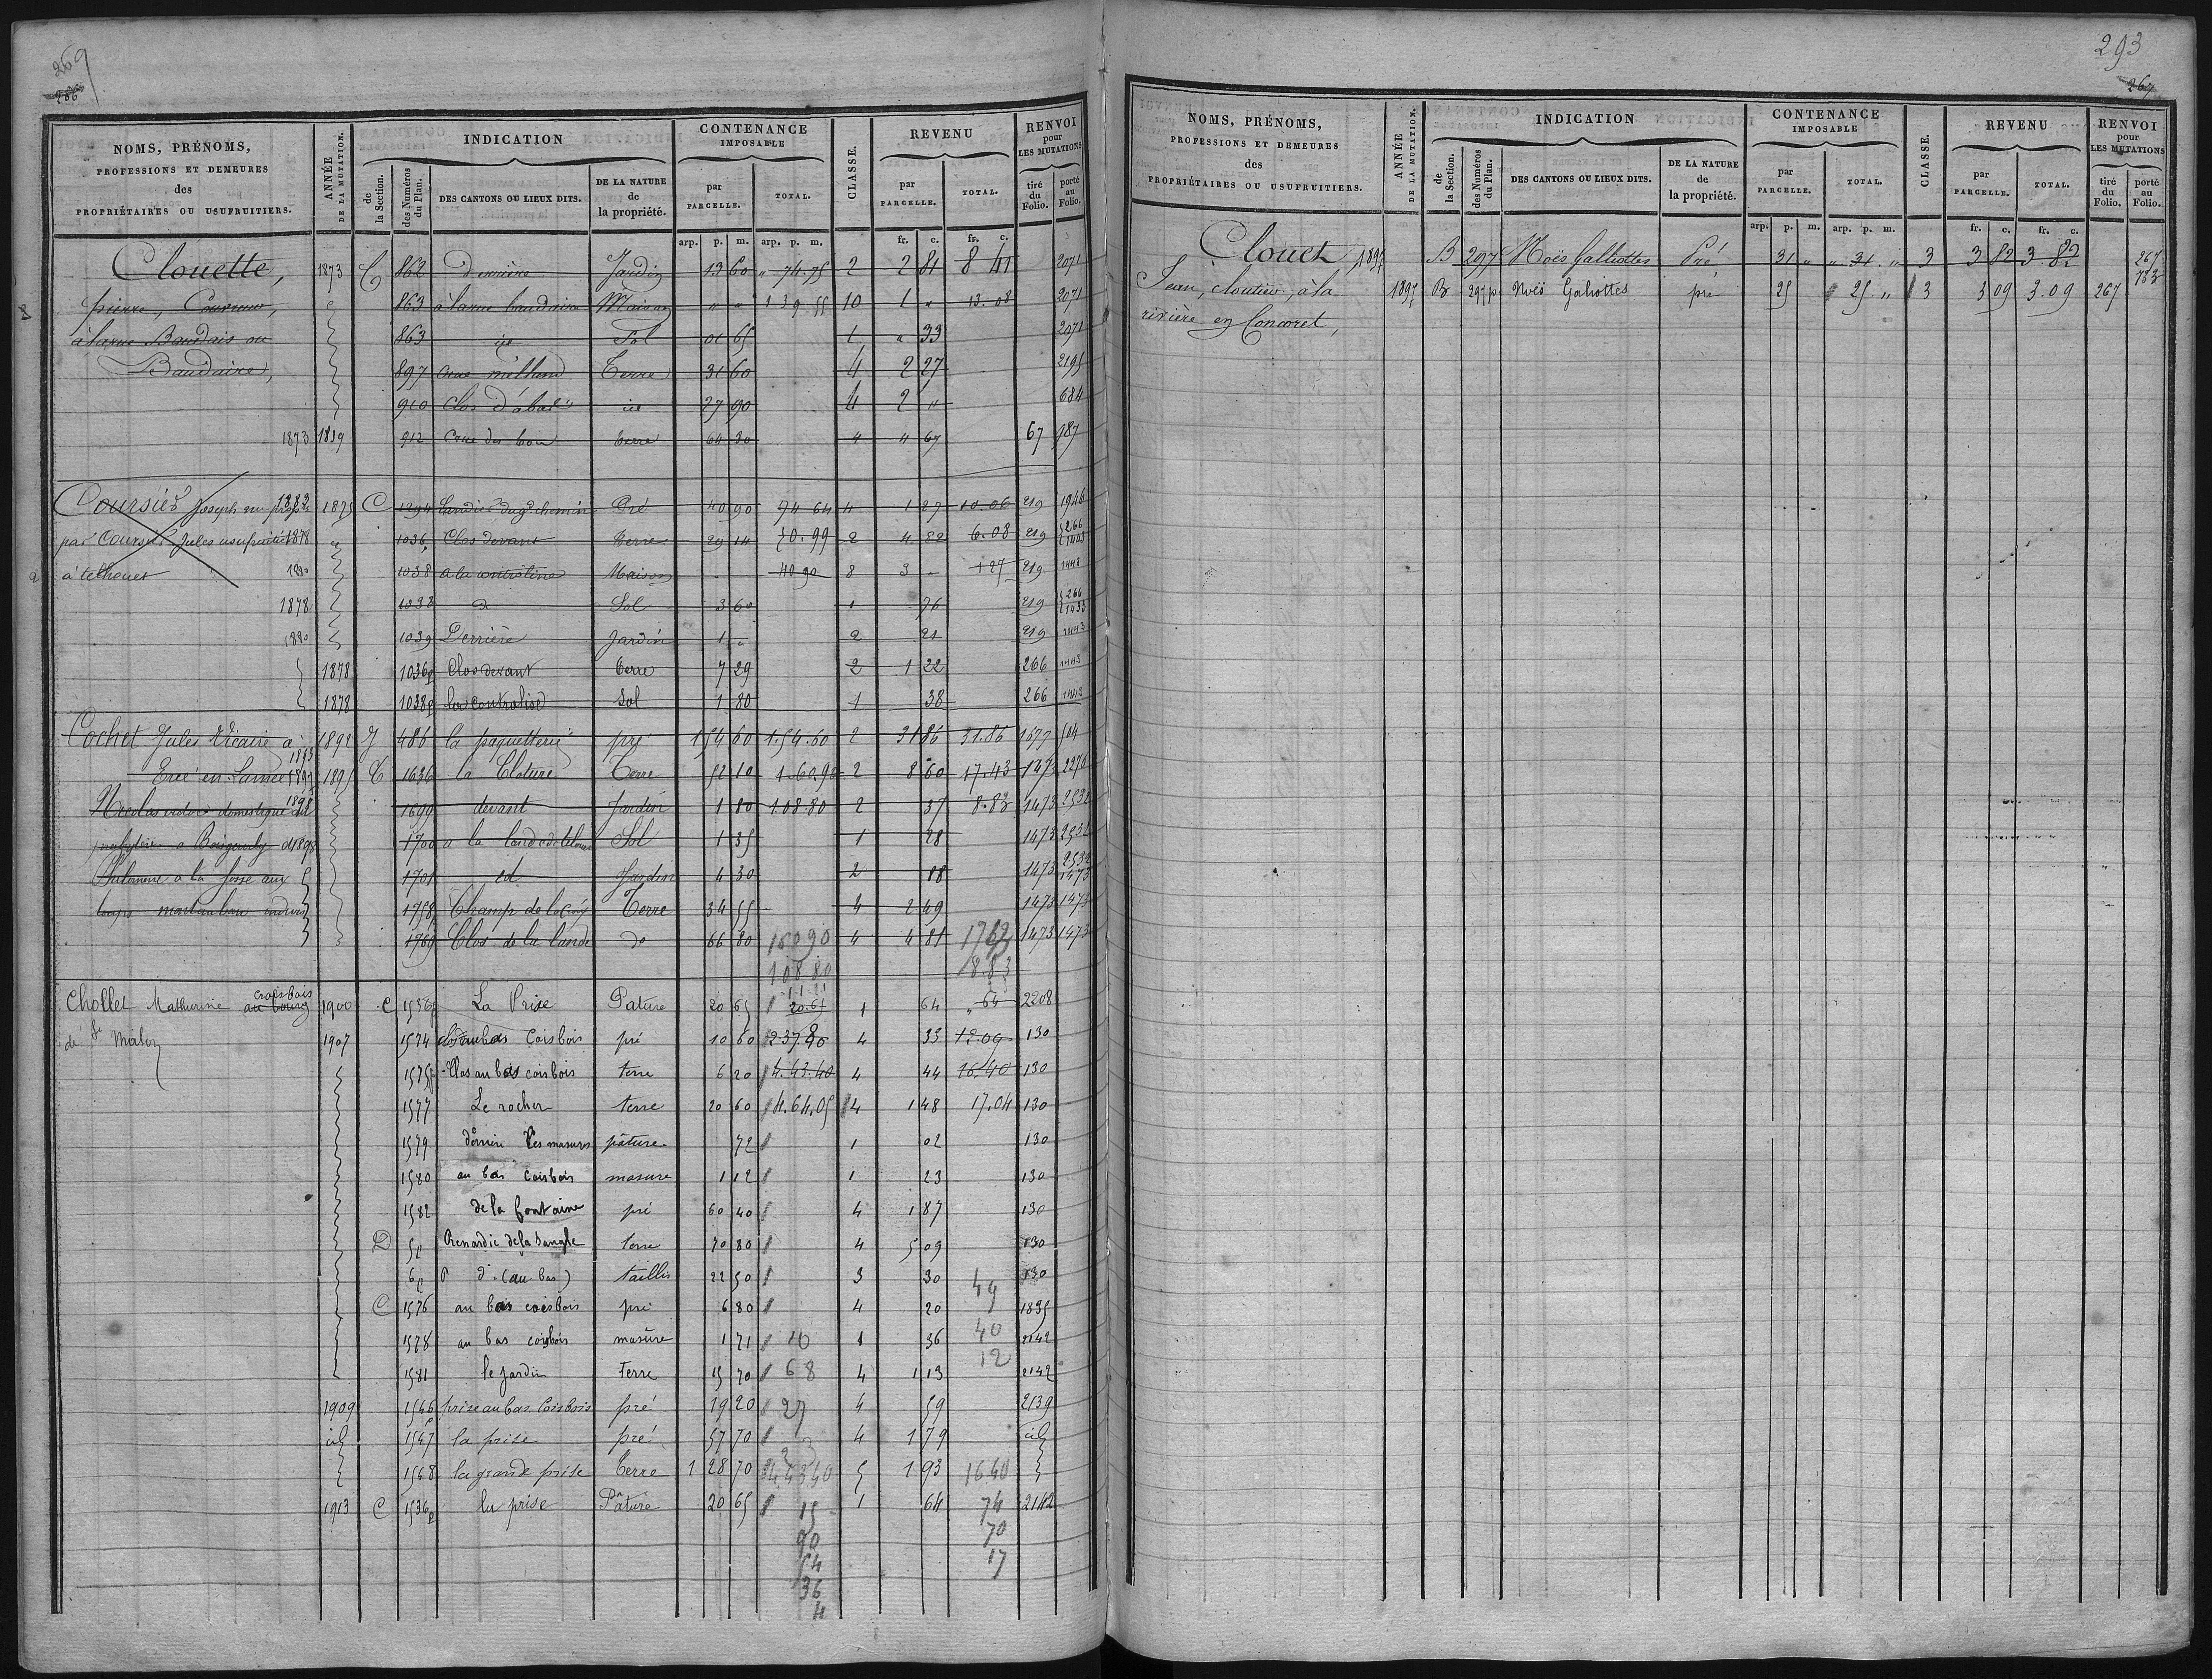 269
286
NOMS, PRÉNOMS, PROFESSIONS ET DEMEURES des PROPRIÉTAIRES OU USUFRUITIERS.
ANNÉE DE LA MUTATION.
INDICATION
de la Section.
des Numéros du Plan.
DES CANTONS OU LIEUX DITS.
DE LA NATURE de la propriété.
CONTENANCE IMPOSABLE
par PARCELLE.
TOTAL.
CLASSE.
REVENU
par PARCELLE.
TOTAL.
RENVOI pour LES MUTATIONS
tiré du Folio.
porté au Folio.
arp. p. m. arp. p. m. fr. c. fr. c.
Clouette, 1873 C 862 derrière Jardin 13 60 " 74.75 2 2 81 8 41 2071
pierre, 863 à la rue baudaire Maison " " 1 39.55 10 1 " 13.08 2071
à la rue Baudais ou 863 id Sol 01 65 1 " 33 2071
Baudaire, 897 Terre 31 60 4 2 27 2195
910 Clos d'abas id 27 90 4 2 " 684
1873 1839 912 Terre 64 80 4 4 67 67 987
Coursier Joseph 1882 1875 C 1294 Pré 40 90 74 64 4 1 27 10.06 219 1946
par Coursier Jules usufruitier 1878 1036p Clos devant Terre 29 14 70.99 2 4 82 6.08 219 266 1443
à telhouet 1880 1038 Maison 40 90 8 3 - 1 27 219 1443
1878 1038 do Sol 3 60 1 76 219 266 1433
1880 1039 Derrière Jardin 1 " 2 21 219 1443
1878 1036p Clos devant terre 7 29 2 1 22 266 1443
1878 1038p Sol 1 80 1 38 266 1443
Cochet Jules Vicaire à 1892 J 486 la paquetterie pré 1 54 60 1.54.60 2 31 86 31.86 1677 504
1893
Ercé en Lamée 1897 1895 C 1636 la Cloture Terre 52 10 1.60.90 2 8 60 17.43 1473 2270
domestique 1898 1699 devant Jardin 1 80 108 80 2 37 8.83 1473 2532
1700 Sol 1 35 1 28 1473 2532
à la fosse aux 1701 id Jardin 4 30 2 88 1473 2532 1473
loups 1758 Champ de la Croix Terre 34 55 4 2 49 1473 1473
1769 Clos de la lande do 66 80 160 90 4 4 81 1473 1473
108 80 8.83
Chollet Mathurin croisbois au bourg 1900 C 1536p La Prise Pature 20 65 20.65 1 64 " 64 2208
de St Malon 1907 1574 clos au bas Coisbois pré 10 60 237 80 4 33 12.09 130
1575p Clos au bas coisbois terre 6 20 4.43.40 4 44 16.40 130
1577 Le rocher terre 20 60 4.64.05 4 1 48 17.04 130
1579 derrière les masures pâture 72 1 02 130
1580 au bas coisbois masure 1 12 1 23 130
1582 de la fontaine pré 60 40 4 1 87 130
D 5p Renardie de la Sangle terre 70 80 4 5 09 130
6p do (au bas) taillis 22 50 3 30 49 130
C 1576 au bas coisbois pré 6 80 4 20 1835
1578 au bas coisbois masure 1 71 10 1 36 40 2142
1581 le jardin terre 15 70 68 4 1 13 12 2142
1909 1546p prise au bas Coisbois pré 19 20 27 4 59 2139
id 1547 la prise pré 57 70 4 1 79 id
1548 la grande prise Terre 1 28 70 443 40 5 1 93 1640
1913 C 1536p la prise Pâture 20 65 15 1 64 74 2142
90 70
54 17
36
4
293
267
NOMS, PRÉNOMS, PROFESSIONS ET DEMEURES des PROPRIÉTAIRES OU USUFRUITIERS.
ANNÉE DE LA MUTATION.
INDICATION
de la Section.
des Numéros du Plan.
DES CANTONS OU LIEUX DITS.
DE LA NATURE de la propriété.
CONTENANCE IMPOSABLE
par PARCELLE.
TOTAL.
CLASSE.
REVENU
par PARCELLE.
TOTAL.
RENVOI pour LES MUTATIONS
tiré du Folio.
porté au Folio.
arp. p. m. arp. p. m. fr. c. fr. c.
Clouet 1897 B 297 Noës Galiottes Pré 31 " " 31 " 3 3 82 3.82 267 733
Jean, cloutier, à la 1897 B 297p Noës Galiottes pré 25 25 " 3 3 09 3.09 267
rivière en Concoret,